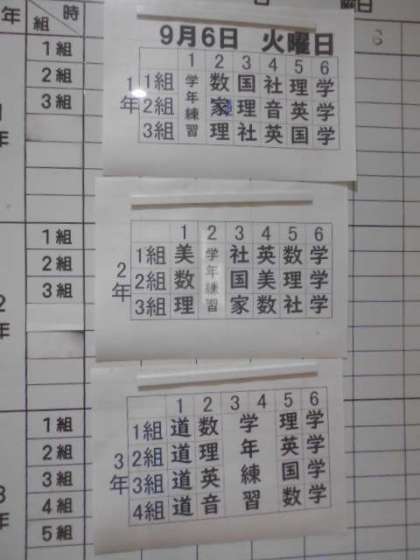 年 組 時 曜日
1組
2組
3組
年
9月6日 火曜日
1 2 3 4 5 6
1年 1組 学年練習 数 国 社 理 学
2組 家 理 音 英 学
3組 理 社 英 国 学
1組
2組
3組
2年
1 2 3 4 5 6
2年 1組 美 学年練習 社 英 数 学
2組 数 国 美 理 学
3組 理 家 数 社 学
1組
2組
3組
4組
5組
年
1 2 3 4 5 6
3年 1組 道 数 学年練習 理 学
2組 道 理 英 学
3組 道 英 国 学
4組 道 音 数 学